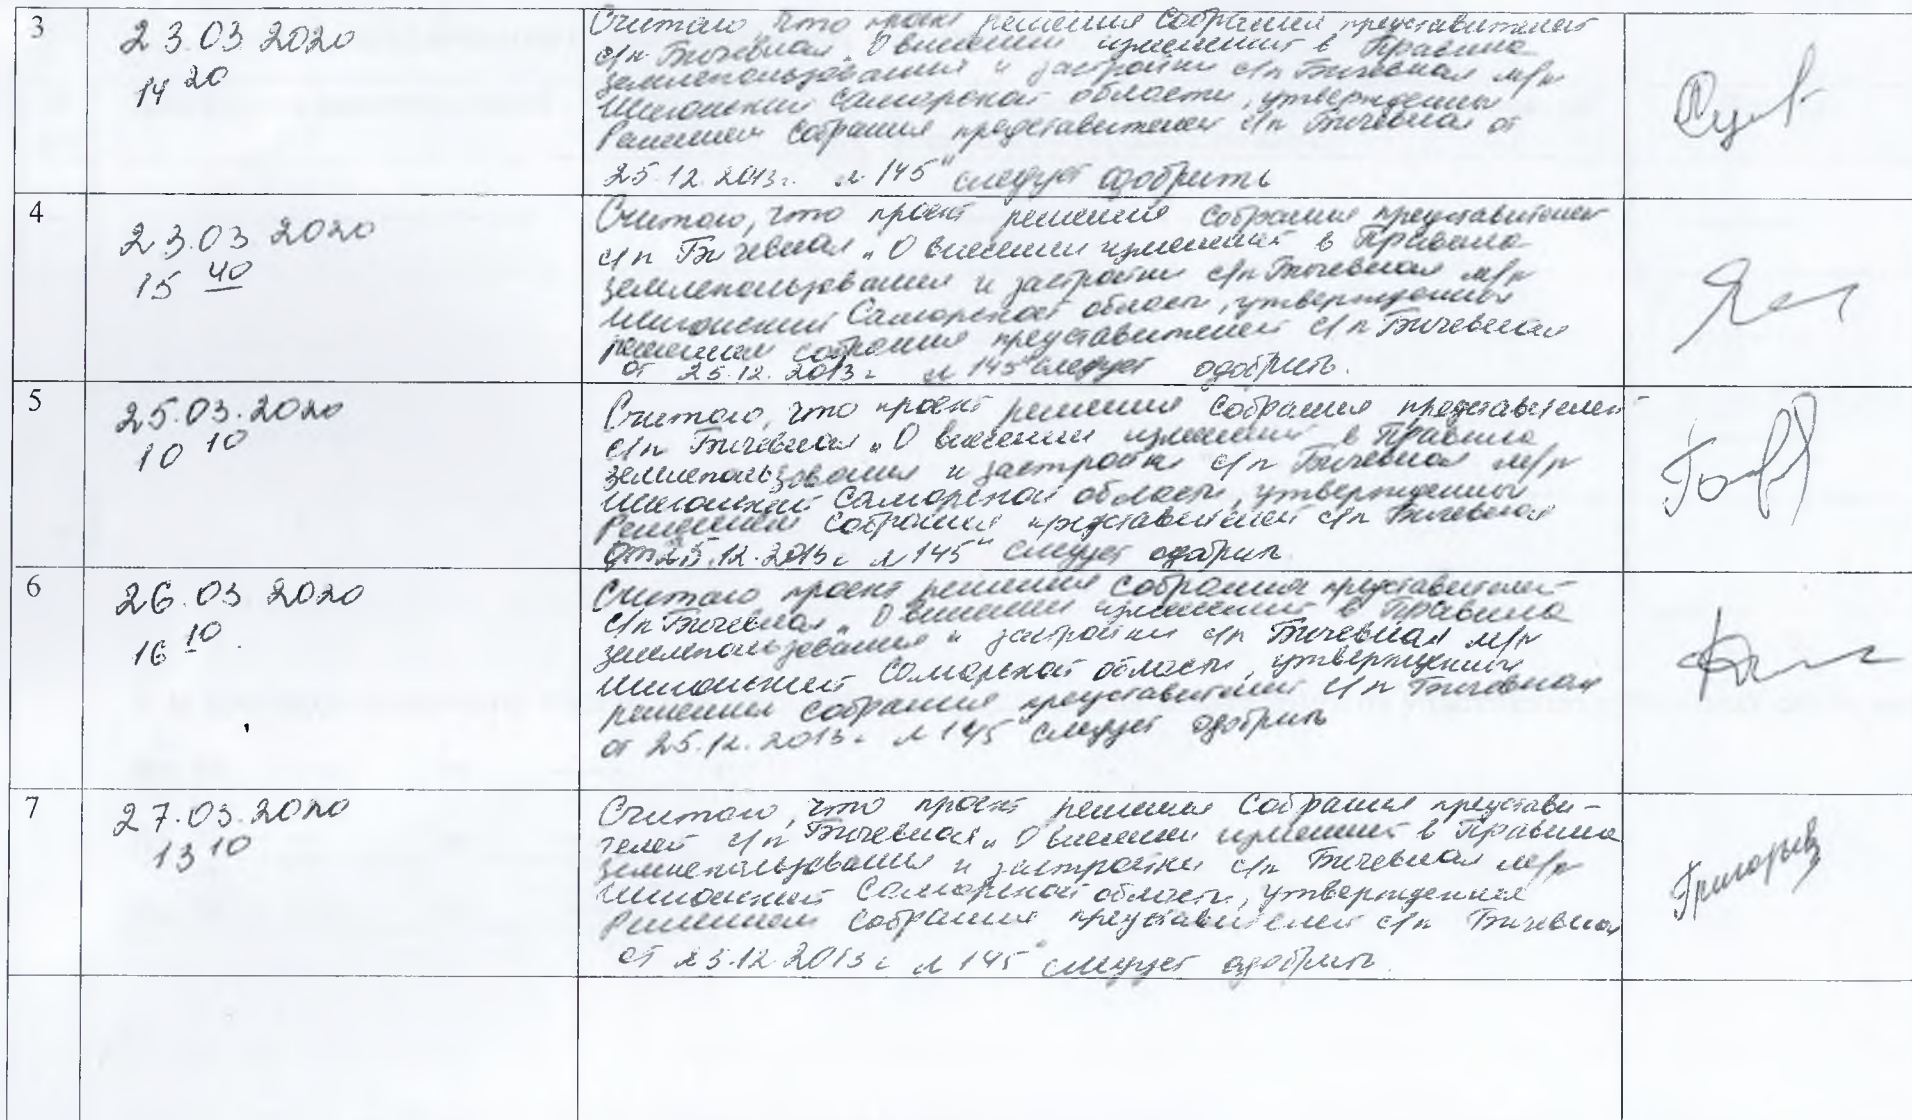 3
23.03 2020
14 20
Считаю что проект решения Собрания представителей
с/п Бичевная „О внесении изменений в Правила
землепользования и застройки с/п Бичевная м/р
Шигонский Самарской области, утвержденны
Решением собрания представителей с/п Бичевная от
25.12.2013г. № 145" следует одобрить
4
23.03 2020
15 40
Считаю, что проект решения Собрания представителей
с/п Бичевная „О внесении изменений в Правила
землепользования и застройки с/п Бичевная м/р
Шигонский Самарской области, утвержденны
решением собрания представителей с/п Бичевная
от 25.12.2013г № 145" следует одобрить.
5
25.03.2020
10 10
Считаю, что проект решения Собрания представителей
с/п Бичевная „О внесении изменений в Правила
землепользования и застройки с/п Бичевная м/р
Шигонский Самарской области, утвержденны
Решением Собрания представителей с/п Бичевная
от 25.12.2013г № 145" следует одобрить
6
26.03 2020
16 10
Считаю проект решения Собрания представителей
с/п Бичевная „О внесении изменений в Правила
землепользования и застройки с/п Бичевная м/р
Шигонский Самарской области, утвержденны
решением собрания представителей с/п Бичевная
от 25.12.2013г № 145" следует одобрить
7
27.03.2020
13 10
Считаю, что проект решения Собрания представи-
телей с/п Бичевная „О внесении изменений в Правила
землепользования и застройки с/п Бичевная м/р
Шигонский Самарской области, утвержденных
Решением Собрания представителей с/п Бичевная
от 25.12.2013г № 145" следует одобрить.
Григорьев